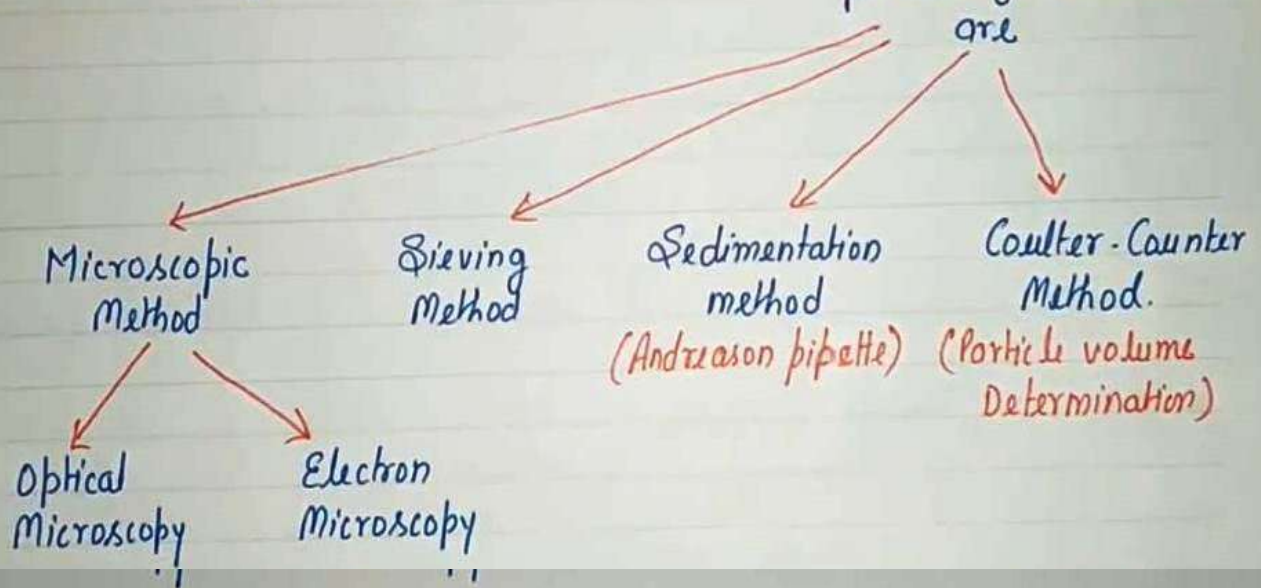 are
Microscopic
Method
Sieving
Method
Sedimentation
method
(Andreason pipette)
Coulter-Counter
Method.
(Particle volume
Determination)
Optical
Microscopy
Electron
Microscopy